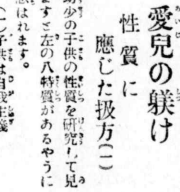 愛兒の躾け
性質に
應じた扱方(一)
幼少の子供の性質を研究して見
ますと左の八特質があるやうに
思はれます。